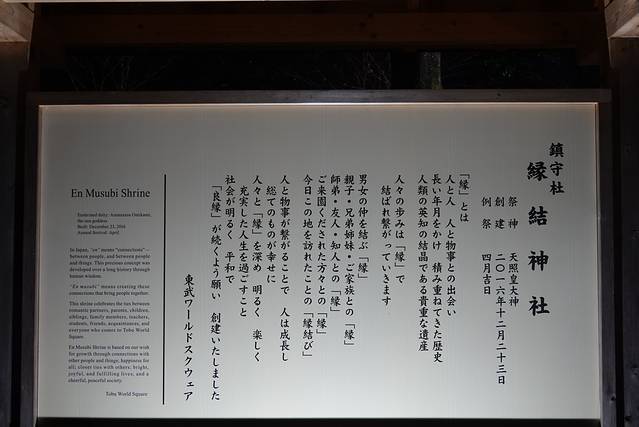 鎮守社
縁結神社
祭神　天照皇大神
創建　二〇一六年十二月二十三日
例祭　四月吉日
「縁」とは
人と人　人と物事との出会い
長い年月をかけ　積み重ねてきた歴史
人類の英知の結晶である貴重な遺産
人々の歩みは「縁」で
結ばれ繋がっていきます
男女の仲を結ぶ「縁」
親子・兄弟姉妹・ご家族との「縁」
師弟・友人・知人との「縁」
ご来園くだされた方々との「縁」
今日この地を訪れたことの「縁結び」
人と物事が繋がることで　人は成長し
総てのものが幸せに
人々と「縁」を深め　明るく　楽しく
充実した人生を過ごすこと
社会が明るく　平和で
「良縁」が続くよう願い　創建いたしました
東武ワールドスクウェア
En Musubi Shrine
Enshrined deity: Amaterasu Omikami,
the sun goddess
Built: December 23, 2016
Annual festival: April
In Japan, "en" means "connections"—
between people, and between people
and things. This precious concept was
developed over a long history through
human wisdom.
"En musubi" means creating these
connections that bring people together.
This shrine celebrates the ties between
romantic partners, parents, children,
siblings, family members, teachers,
students, friends, acquaintances, and
everyone who comes to Tobu World
Square.
En Musubi Shrine is based on our wish
for growth through connections with
other people and things; happiness for
all; closer ties with others; bright,
joyful, and fulfilling lives, and a
cheerful, peaceful society.
Tobu World Square